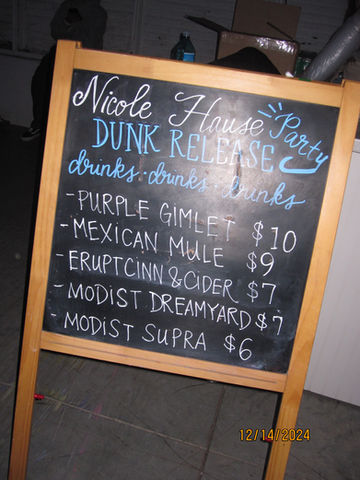 Nicole Hause Party
DUNK RELEASE
drinks · drinks · drinks
- PURPLE GIMLET $10
- MEXICAN MULE $9
- ERUPTCINN & CIDER $7
- MODIST DREAMYARD $7
- MODIST SUPRA $6
12/14/2024